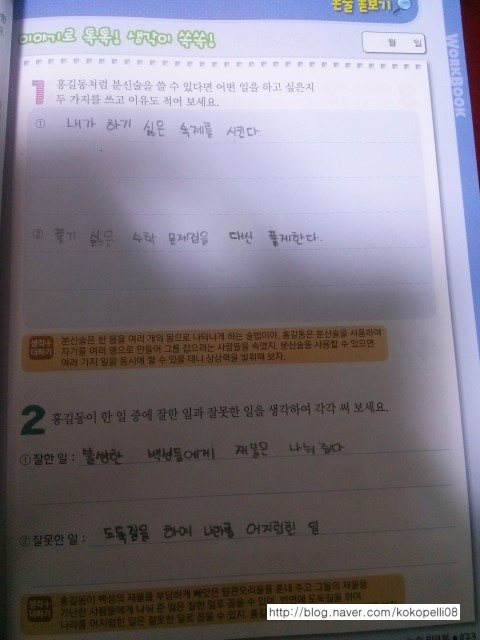 논술 돋보기
이야기로 톡톡! 생각이 쑥쑥!
월 일
WORKBOOK
1 홍길동처럼 분신술을 쓸 수 있다면 어떤 일을 하고 싶은지
두 가지를 쓰고 이유도 적어 보세요.
① 내가 하기 싫은 숙제를 시킨다
② 풀기 싫은 수학 문제집을 대신 풀게한다.
생각 더하기
분신술은 한 몸을 여러 개의 몸으로 나타나게 하는 술법이야. 홍길동은 분신술을 사용하여
자기를 여러 명으로 만들어 그를 잡으려는 사람들을 속였지. 분신술을 사용할 수 있으면
여러 가지 일을 동시에 할 수 있을 테니 상상력을 발휘해 보자.
2 홍길동이 한 일 중에 잘한 일과 잘못한 일을 생각하여 각각 써 보세요.
① 잘한 일 : 불쌍한 백성들에게 재물은 나눠 줬다
② 잘못한 일 : 도둑질을 하여 나라를 어지럽힌 일
생각 더하기
홍길동이 백성의 재물을 부당하게 빼앗은 탐관오리들을 혼내 주고 그들의 재물을
가난한 사람들에게 나눠 준 일은 잘한 일로 꼽을 수 있어. 반면에 도둑질을 하여
나라를 어지럽힌 일은 잘못한 일로 꼽을 수 있지.
http://blog.naver.com/kokopelli08